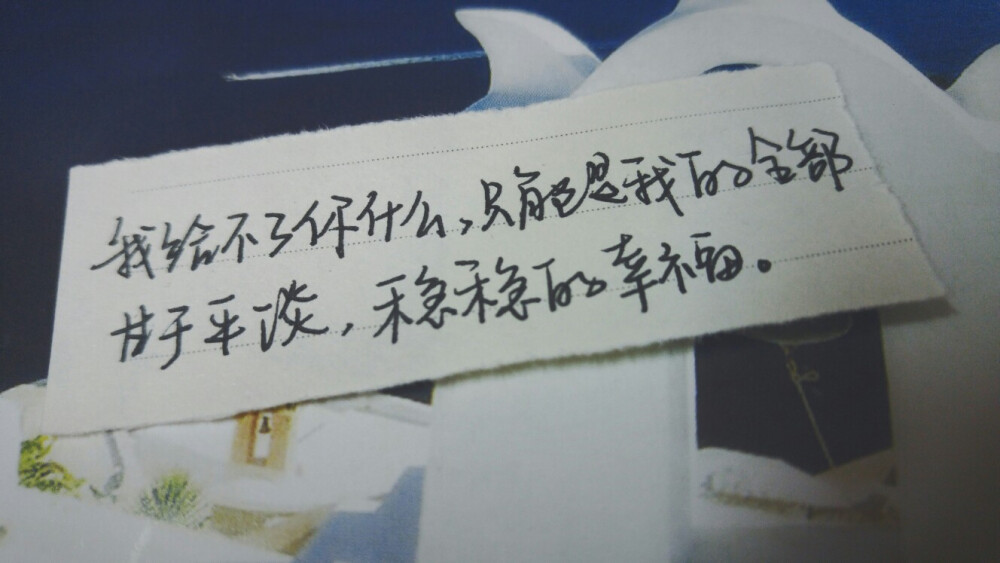 我给不了你什么,只能是我的全部
甘于平淡,稳稳的幸福。